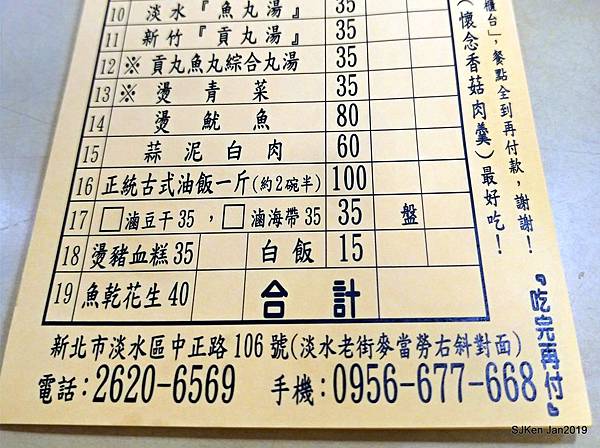 10 淡水『魚丸湯』 35
11 新竹『貢丸湯』 35
12 ※貢丸魚丸綜合丸湯 35
13 ※燙青菜 35
14 燙魷魚 80
15 蒜泥白肉 60
16 正統古式油飯一斤(約2碗半) 100
17 □滷豆干35，□滷海帶35 35 盤
18 燙豬血糕35 白飯 15
19 魚乾花生40 合計
櫃台」，餐點全到再付款，謝謝！
(懷念香菇肉羹)最好吃！
『吃完再付』
新北市淡水區中正路106號(淡水老街麥當勞右斜對面)
電話：2620-6569 手機：0956-677-668
SJKen Jan2019